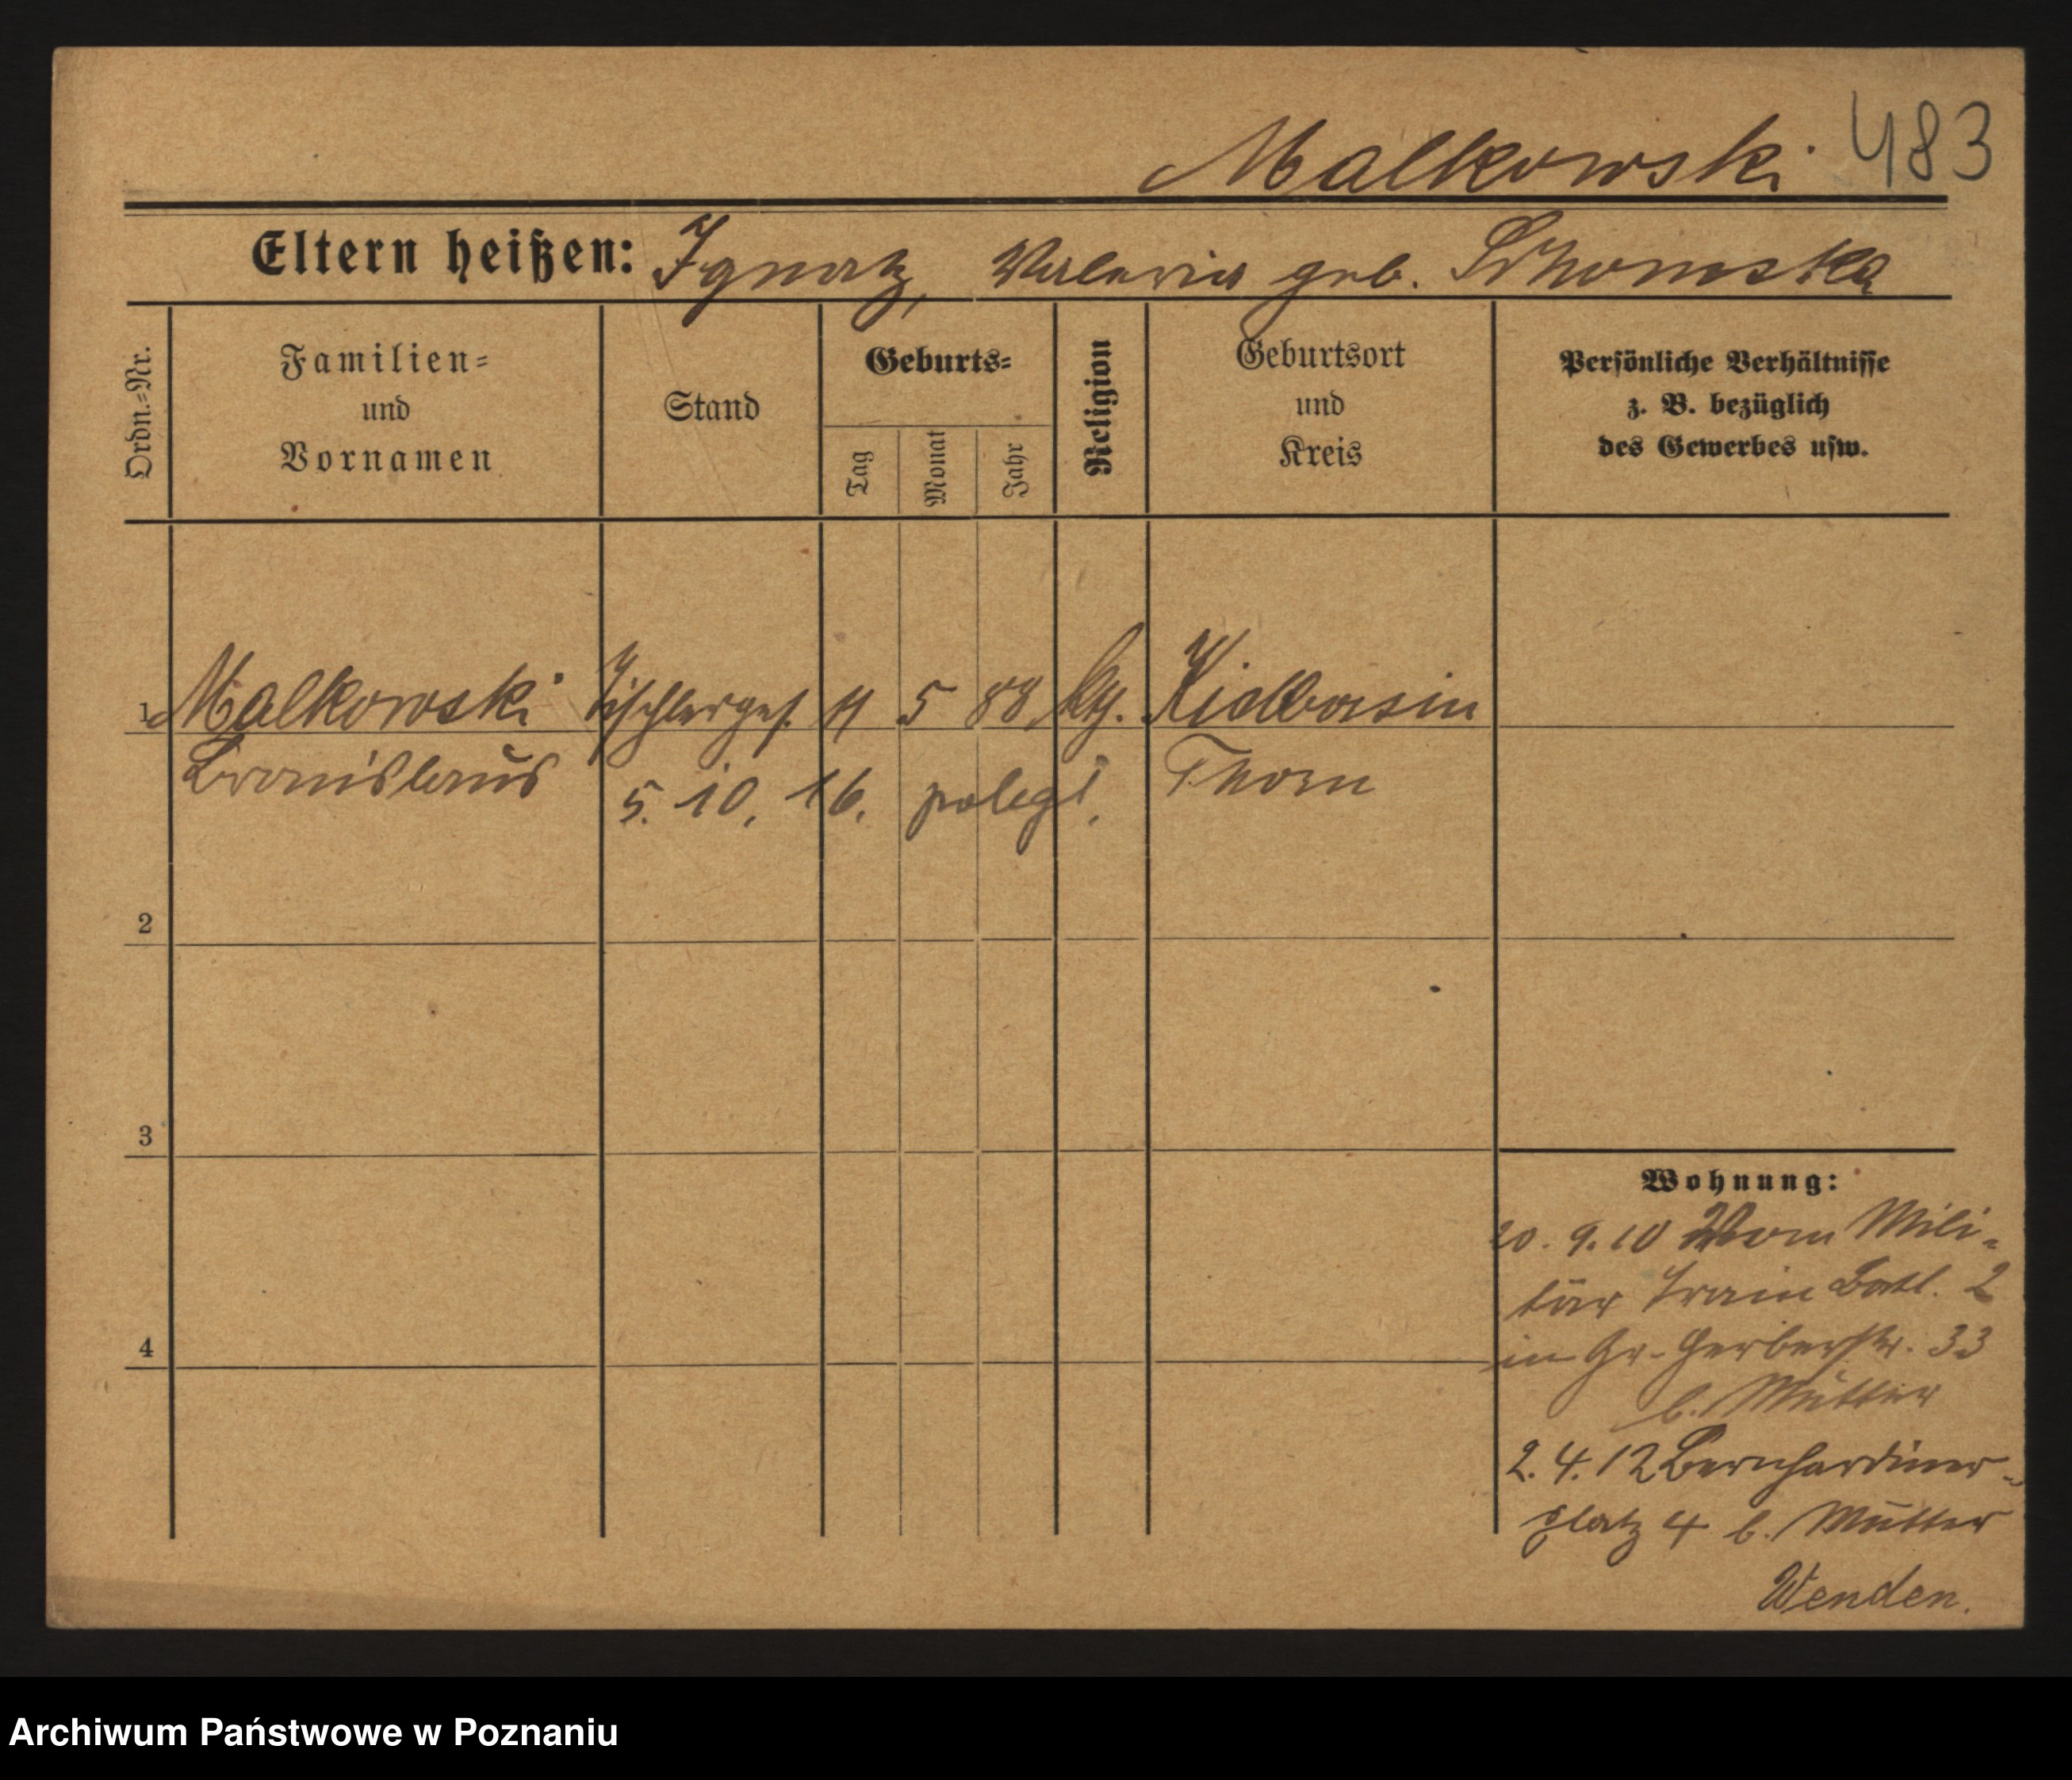 Malkowski 483
Eltern heißen: Ignatz, Valeria geb.
Ordn.-Nr.
Familien-
und
Vornamen
Stand
Geburts-
Tag
Monat
Jahr
Religion
Geburtsort
und
Kreis
Persönliche Verhältnisse
z. B. bezüglich
des Gewerbes usw.
1 Malkowski Tischlerges. 11 5 88 kth. Kielbasin
Bronislaus
5. 10. 16. poległ.
Thorn
2
3
4
Wohnung:
20. 9. 10 Vom Mili-
tär Train Batl. 2
in Gr. Gerberstr. 33
b. Mutter
2. 4. 12 Bernhardiner-
platz 4 b. Mutter
Wenden.
Archiwum Państwowe w Poznaniu